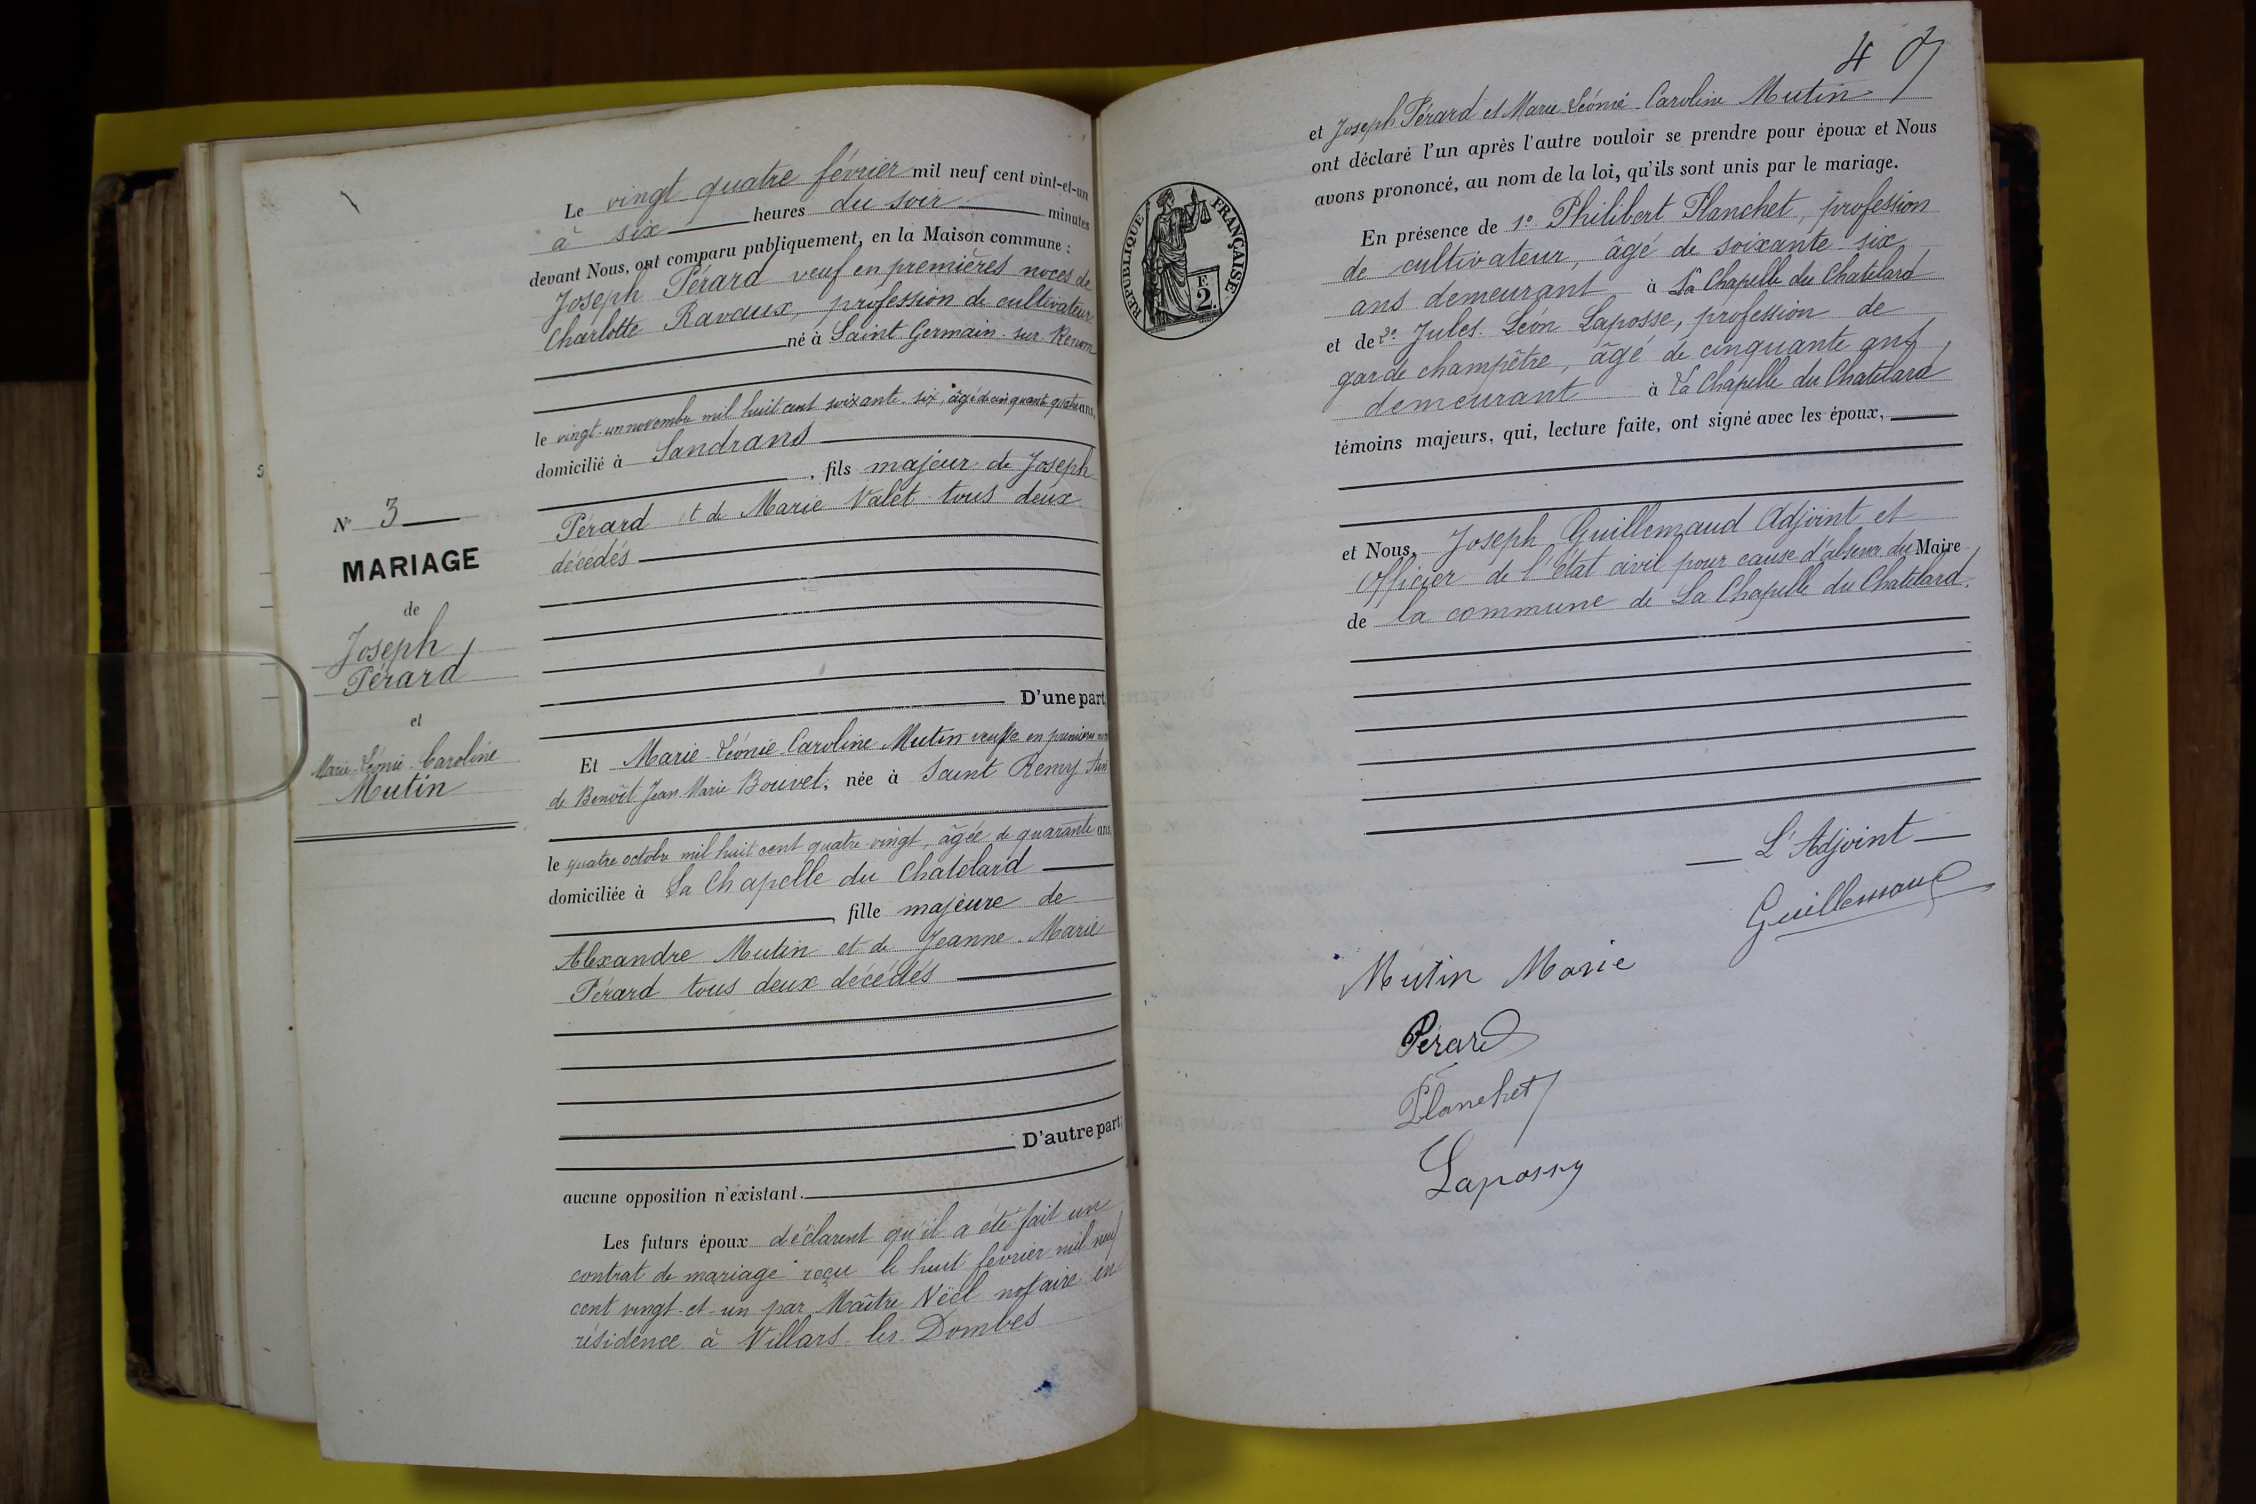 Le vingt quatre février mil neuf cent vint-et-un
à six heures du soir minutes
devant Nous, ont comparu publiquement, en la Maison commune :
Joseph Pérard veuf en premières noces de
Charlotte Ravaux, profession de cultivateur
né à Saint Germain-sur-Renom
le vingt-un novembre mil huit cent soixante-six, âgé de cinquante quatre ans,
domicilié à Sandrans
, fils majeur de Joseph
Pérard et de Marie Valet tous deux
décédés
N° 3
MARIAGE
de
Joseph
Pérard
et
Marie-Léonie-Caroline
Mutin
D'une part
Et Marie-Léonie-Caroline Mutin veuve en premières
de Benoît Jean Marie Bouvet, née à Saint Remy Ain
le quatre octobre mil huit cent quatre-vingt, âgée de quarante ans,
domiciliée à La Chapelle du Chatelard
, fille majeure de
Alexandre Mutin et de Jeanne-Marie
Pérard tous deux décédés
D'autre part;
aucune opposition n'existant.
Les futurs époux déclarent qu'il a été fait un
contrat de mariage reçu le huit février mil neuf
cent vingt-et-un par Maître Néel notaire en
résidence à Villars-les-Dombes
4
et Joseph Pérard et Marie-Léonie-Caroline Mutin
ont déclaré l'un après l'autre vouloir se prendre pour époux et Nous
avons prononcé, au nom de la loi, qu'ils sont unis par le mariage.
REPUBLIQUE FRANÇAISE
F.
2.
En présence de 1° Philibert Planchet, profession
de cultivateur, âgé de soixante-six
ans demeurant à La Chapelle du Chatelard
et de 2° Jules-Léon Laposse, profession de
garde champêtre, âgé de cinquante ans,
demeurant à La Chapelle du Chatelard
témoins majeurs, qui, lecture faite, ont signé avec les époux,
et Nous, Joseph Guillemaud Adjoint et
Officier de l'état civil pour cause d'absence du Maire
de la commune de La Chapelle du Chatelard.
L'Adjoint
Guillemaud
Mutin Marie
Pérard
Planchet